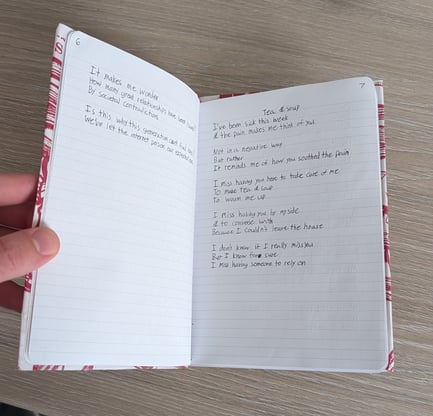 6
It makes me wonder
How many great relationships have been
By societal contradictions
Is this why this generation can't find love?
We've let the internet poison our
7
Tea & Soup
I've been sick this week
& the pain makes me think of you
Not in a negative way
But rather
It reminds me of how you soothed the pain
I miss having you here to take care of me
To make tea & soup
To warm me up
I miss having you by my side
& to converse with
Because I couldn't leave the house
I don't know if I really miss you
But I know for sure
I miss having someone to rely on